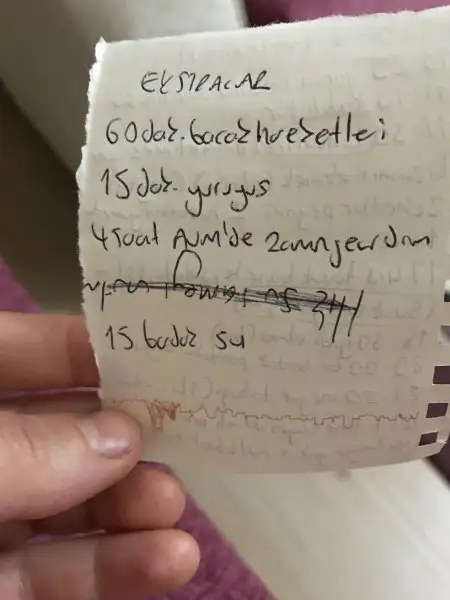 EKSTRALAR
60 dak. bacak hareketleri
15 dak. yürüyüş
4 saat AVM'de zaman geçirdim
15 bardak su